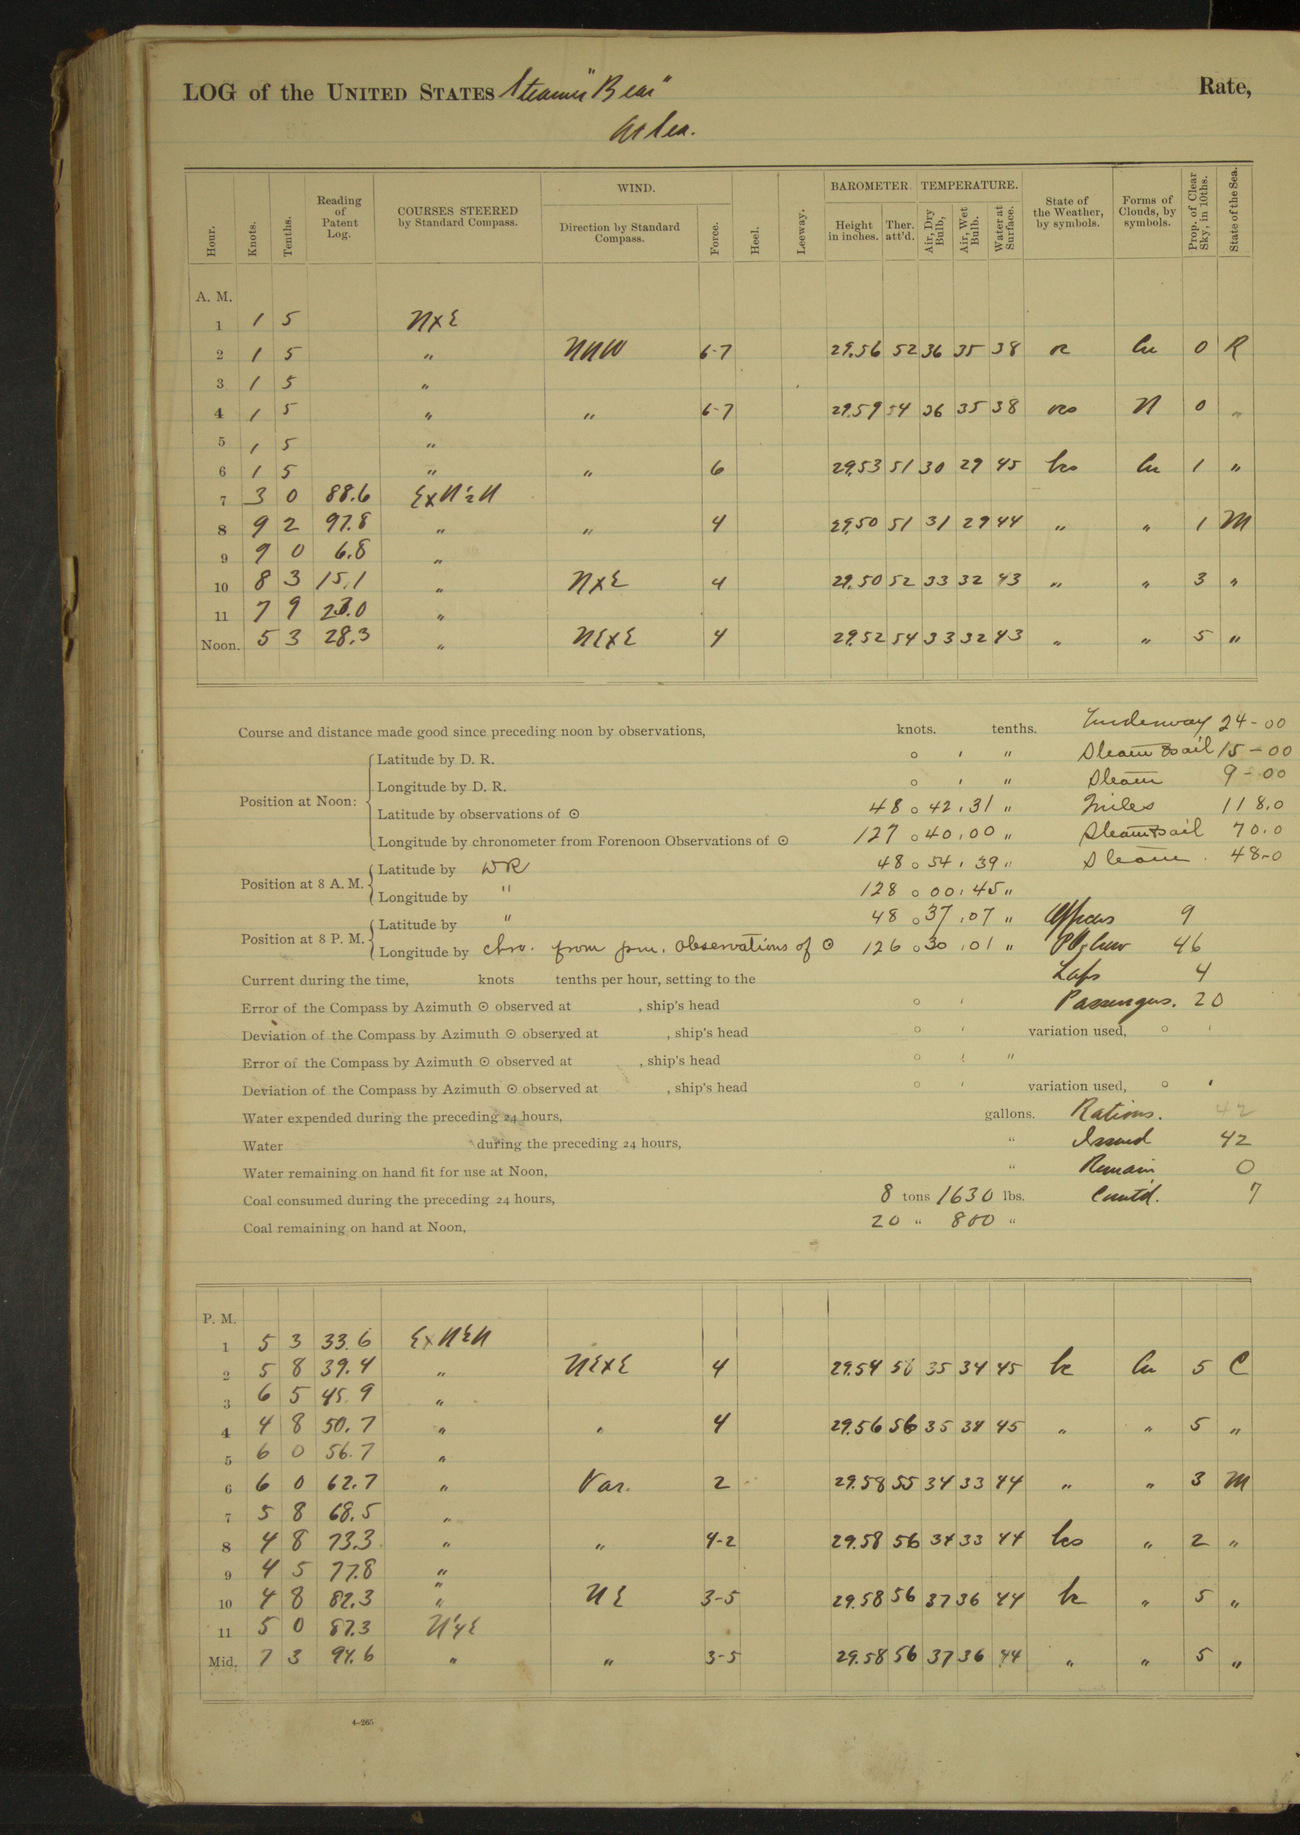 LOG of the UNITED STATES Steamer "Bear" Rate,
At Sea.
Hour. Knots. Tenths. Reading of Patent Log. COURSES STEERED by Standard Compass. WIND. Direction by Standard Compass. Force. Heel. Leeway. BAROMETER. Height in inches. Ther. att'd. TEMPERATURE. Air, Dry Bulb, Air, Wet Bulb. Water at Surface. State of the Weather, by symbols. Forms of Clouds, by symbols. Prop. of Clear Sky, in 10ths. State of the Sea.
A. M.
1 1 5 NxE
2 1 5 " NNW 6-7 29.56 52 36 35 38 oc Cu 0 R
3 1 5 "
4 1 5 " " 6-7 29.59 54 36 35 38 ocs N 0 "
5 1 5 "
6 1 5 " " 6 29.53 51 30 29 45 bcs Cu 1 "
7 3 0 88.6 ExN½N
8 9 2 97.8 " " 4 29.50 51 31 29 44 " " 1 M
9 9 0 6.8 "
10 8 3 15.1 " NxE 4 29.50 52 33 32 43 " " 3 "
11 7 9 23.0 "
Noon. 5 3 28.3 " NExE 4 29.52 54 33 32 43 " " 5 "
Course and distance made good since preceding noon by observations, knots. tenths. Underway 24-00
Latitude by D. R. ° ' " Steam & sail 15-00
Longitude by D. R. ° ' " Steam 9-00
Position at Noon:
Latitude by observations of ⊙ 48 ° 42 ' 31 " Miles 118.0
Longitude by chronometer from Forenoon Observations of ⊙ 127 ° 40 ' 00 " Steam & sail 70.0
Position at 8 A. M. Latitude by DR 48 ° 54 ' 39 " Steam 48-0
Longitude by " 128 ° 00 ' 45 "
Position at 8 P. M. Latitude by " 48 ° 37 ' 07 " Officers 9
Longitude by chro. from p.m. observations of ⊙ 126 ° 30 ' 01 " Crew 46
Current during the time, knots tenths per hour, setting to the 4
Error of the Compass by Azimuth ⊙ observed at , ship's head ° ' Passengers. 20
Deviation of the Compass by Azimuth ⊙ observed at , ship's head ° ' variation used, ° '
Error of the Compass by Azimuth ⊙ observed at , ship's head ° ' "
Deviation of the Compass by Azimuth ⊙ observed at , ship's head ° ' variation used, ° '
Water expended during the preceding 24 hours, gallons. Rations. 42
Water during the preceding 24 hours, " Issued 42
Water remaining on hand fit for use at Noon, " Remain 0
Coal consumed during the preceding 24 hours, 8 tons 1630 lbs. Comt'd. 7
Coal remaining on hand at Noon, 20 " 800 "
P. M.
1 5 3 33.6 ExN½N
2 5 8 39.4 " NExE 4 29.54 58 35 34 45 bc Cu 5 C
3 6 5 45.9 "
4 4 8 50.7 " " 4 29.56 56 35 34 45 " " 5 "
5 6 0 56.7 "
6 6 0 62.7 " Var. 2 29.58 55 34 33 44 " " 3 M
7 5 8 68.5 "
8 4 8 73.3 " " 4-2 29.58 56 34 33 44 bcs " 2 "
9 4 5 77.8 "
10 4 8 82.3 " NE 3-5 29.58 56 37 36 44 bc " 5 "
11 5 0 87.3 N¼E
Mid. 7 3 94.6 " " 3-5 29.58 56 37 36 44 " " 5 "
4-265